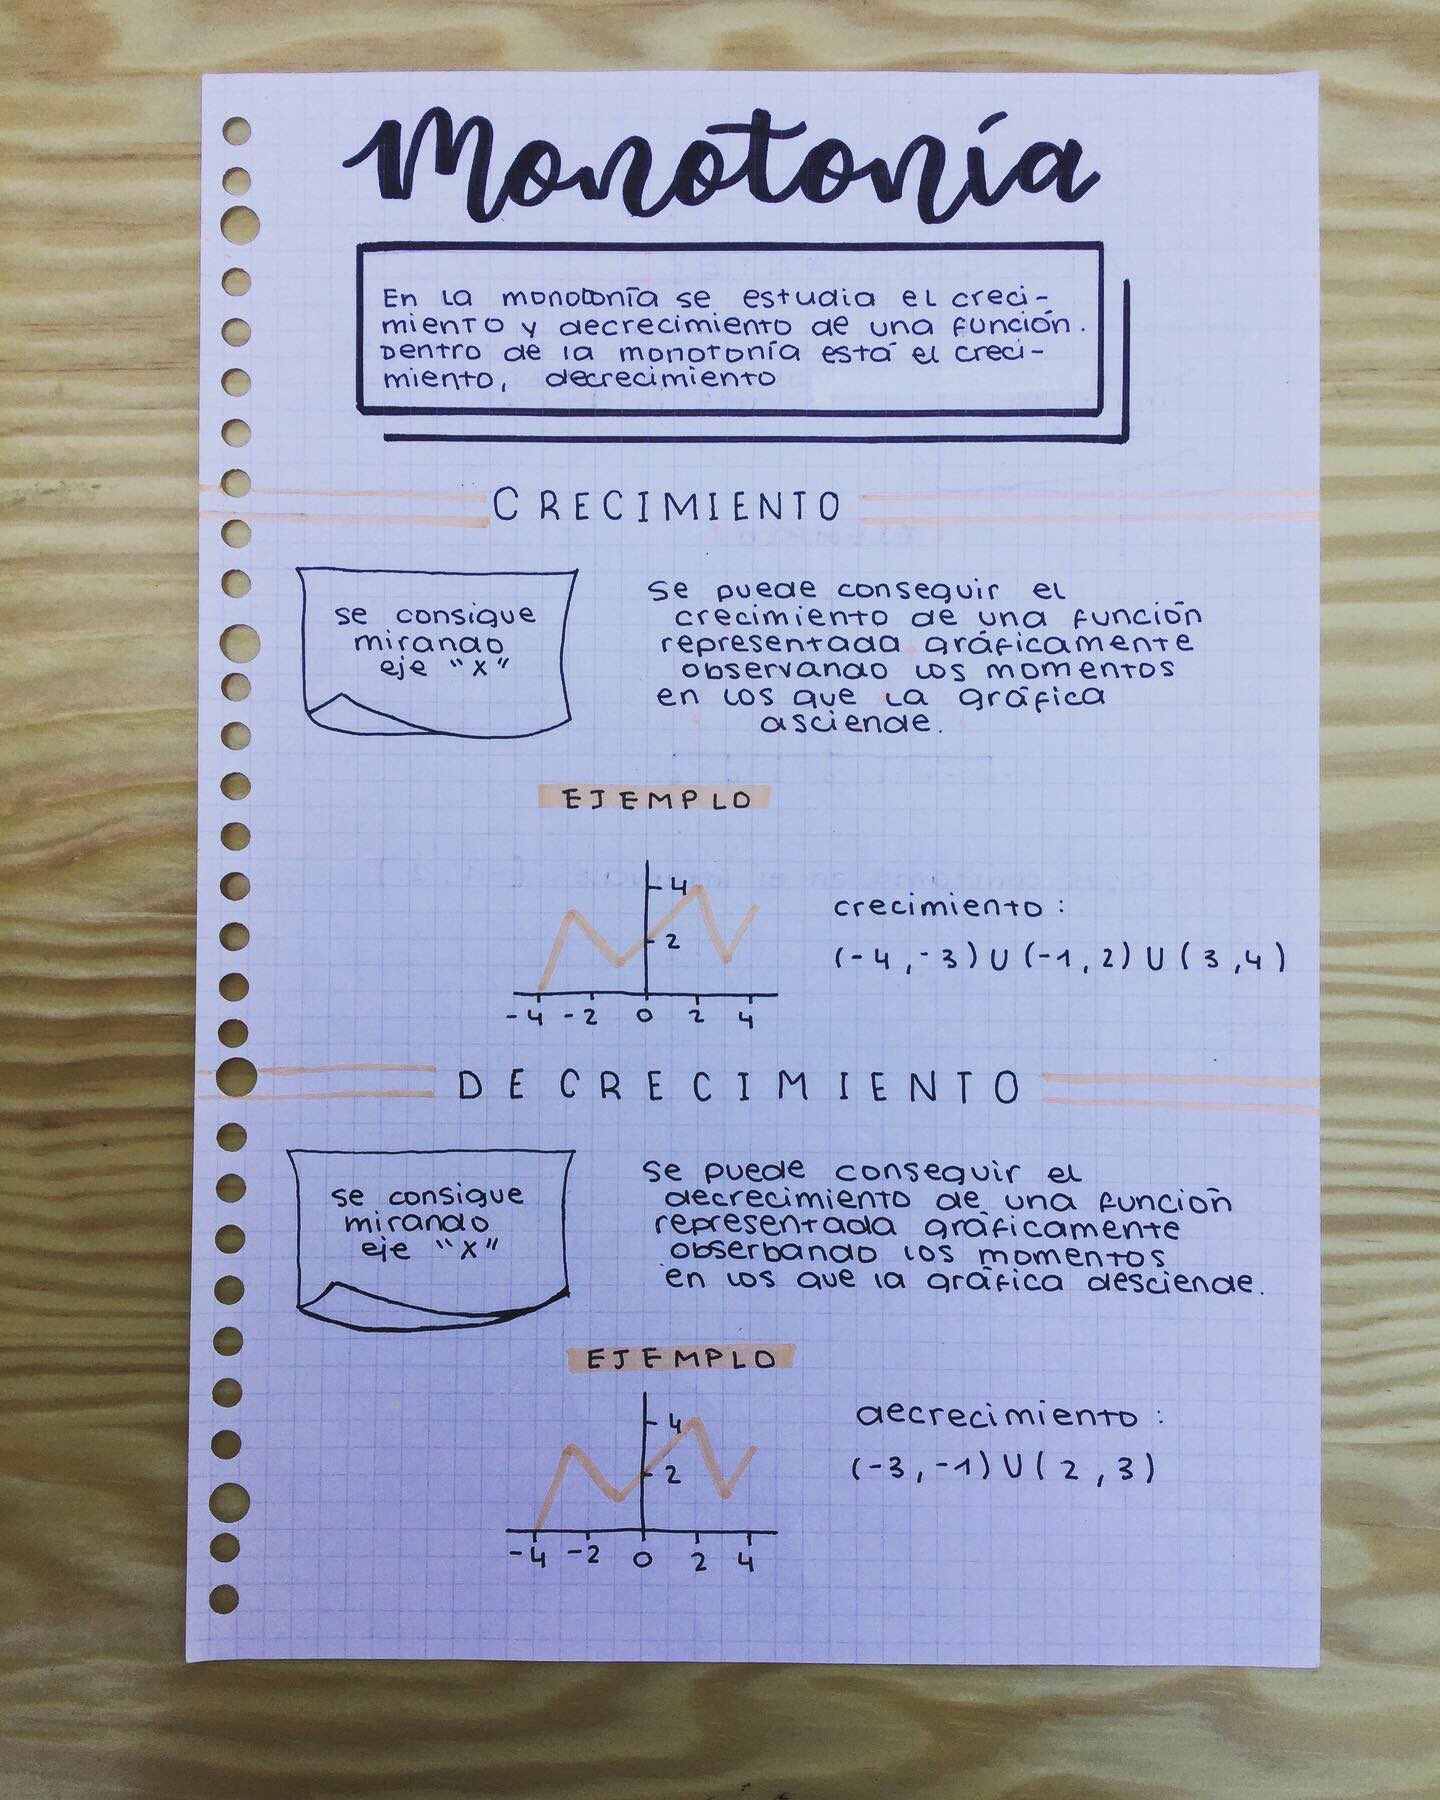 Monotonía
En la monotonía se estudia el creci-
miento y decrecimiento de una función.
Dentro de la monotonía está el creci-
miento, decrecimiento
CRECIMIENTO
se consigue
mirando
eje "x"
se puede conseguir el
crecimiento de una función
representada gráficamente
observando los momentos
en los que la gráfica
asciende.
EJEMPLO
4
2
-4 -2 0 2 4
crecimiento:
(-4,-3) U (-1,2) U (3,4)
DECRECIMIENTO
se consigue
mirando
eje "x"
se puede conseguir el
decrecimiento de una función
representada gráficamente
obserbando los momentos
en los que la gráfica desciende.
EJEMPLO
4
2
-4 -2 0 2 4
decrecimiento:
(-3,-1) U (2,3)